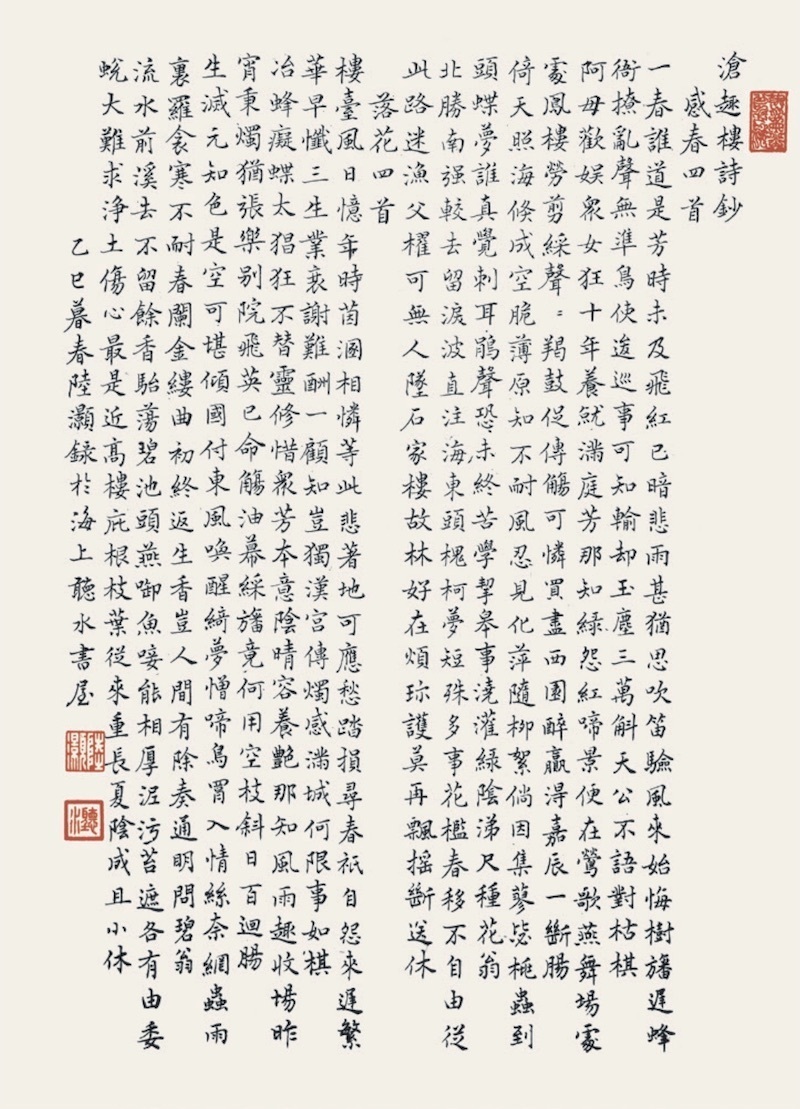 滄趣樓詩鈔
感春四首
一春誰道是芳時未及飛紅已暗悲雨甚猶思吹笛驗風來始悔樹旛遲蜂
衙撩亂聲無準鳥使逡巡事可知輸却玉塵三萬斛天公不語對枯棋
阿母歡娱衆女狂十年養就滿庭芳那知綠怨紅啼景便在鶯歌燕舞場處
處鳳樓勞剪綵聲〻羯鼓促傳觴可憐買盡西園醉贏得嘉辰一斷腸
倚天照海倏成空脆薄原知不耐風忍見化萍隨柳絮倘因集蓼毖桃蟲到
頭蝶夢誰真覺刺耳鵑聲恐未終苦學挈皋事澆灌綠陰涕尺種花翁
北勝南强較去留淚波直注海東頭槐柯夢短殊多事花檻春移不自由從
此路迷漁父櫂可無人墜石家樓故林好在煩珎護莫再飄摇斷送休
落花四首
樓臺風日憶年時茵溷相憐等此悲著地可應愁踏損尋春祇自怨來遲繁
華早懺三生業衰謝難酬一顧知豈獨漢宮傳燭感滿城何限事如棋
冶蜂癡蝶太猖狂不替靈修惜衆芳本意陰晴容養艷那知風雨趣收場昨
宵秉燭猶張樂別院飛英已命觴油幕綵旛竟何用空枝斜日百迴腸
生滅元知色是空可堪傾國付東風喚醒綺夢憎啼鳥罥入情絲奈網蟲雨
裏羅衾寒不耐春闌金縷曲初終返生香豈人間有除奏通明問碧翁
流水前溪去不留餘香駘蕩碧池頭燕啣魚唼能相厚泥污苔遮各有由委
蛻大難求净土傷心最是近高樓庇根枝葉從來重長夏陰成且小休
乙巳暮春陸灝録於海上聽水書屋
陸灝
聽水